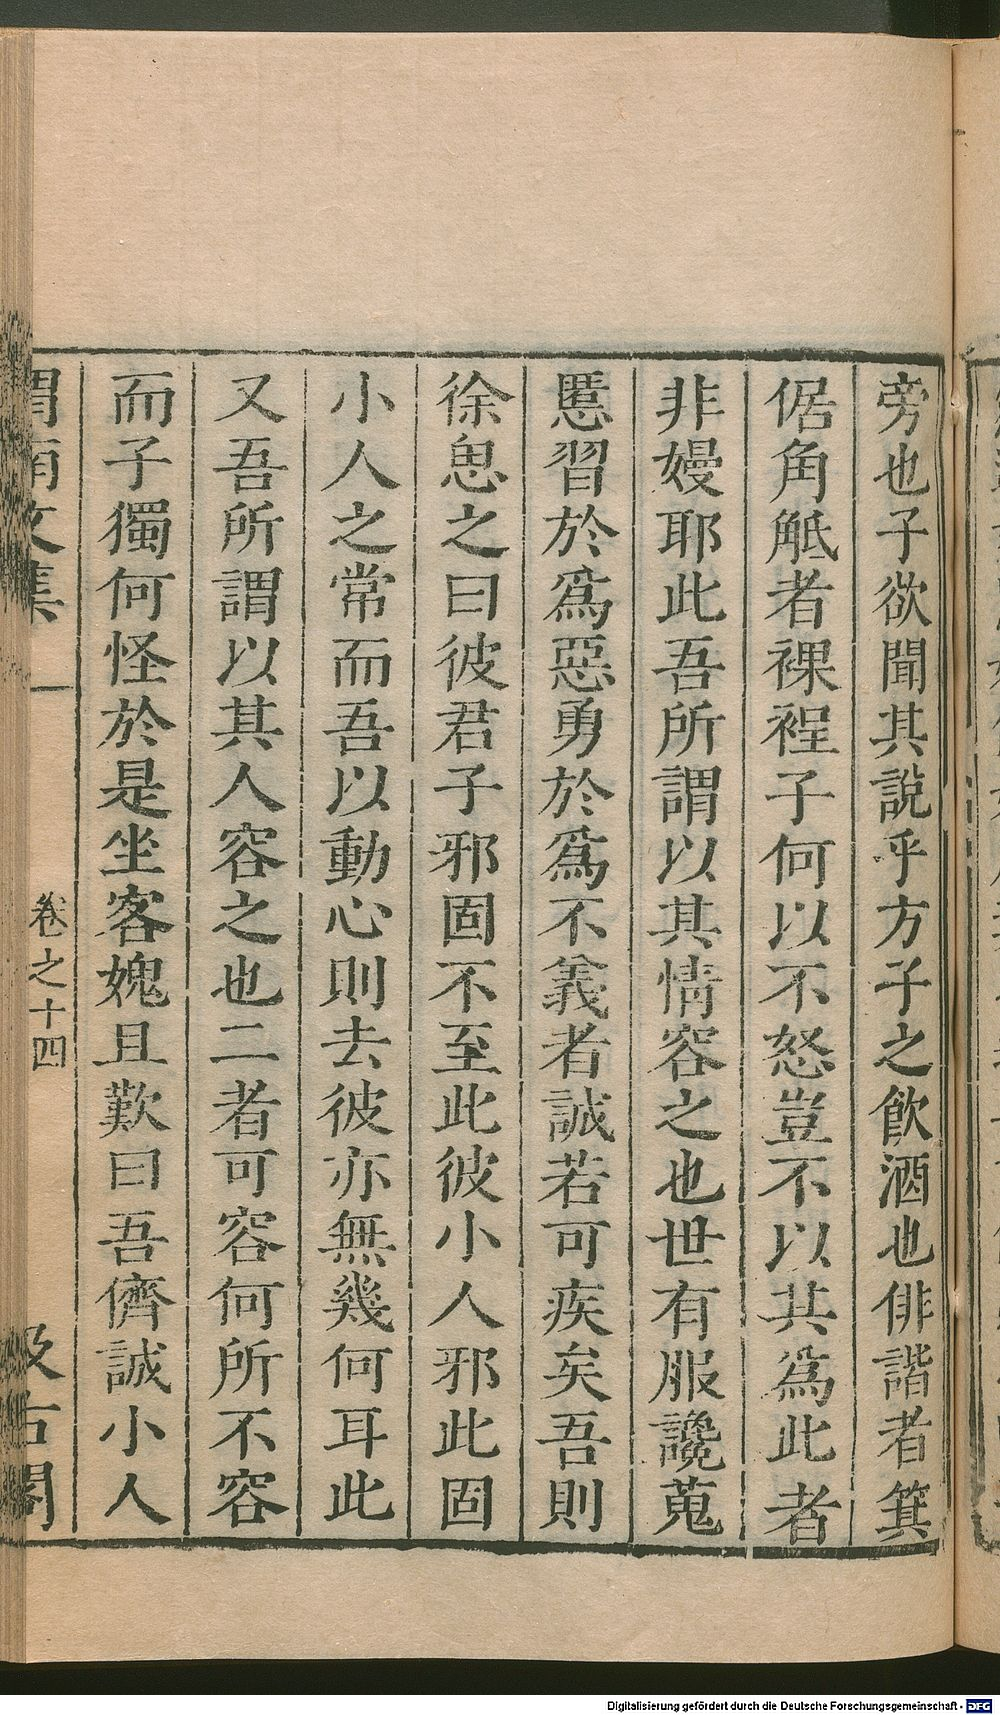 旁也子欲聞其說乎方子之飲酒也俳諧者箕
倨角觝者裸裎子何以不怒豈不以其為此者
非嫚耶此吾所謂以其情容之也世有服讒蒐
慝習於爲惡勇於爲不義者誠若可疾矣吾則
徐思之曰彼君子邪固不至此彼小人邪此固
小人之常而吾以動心則去彼亦無幾何耳此
又吾所謂以其人容之也二者可容何所不容
而子獨何怪於是坐客媿且歎曰吾儕誠小人
渭南文集
卷之十四
汲古閣
Digitalisierung gefördert durch die Deutsche Forschungsgemeinschaft - DFG